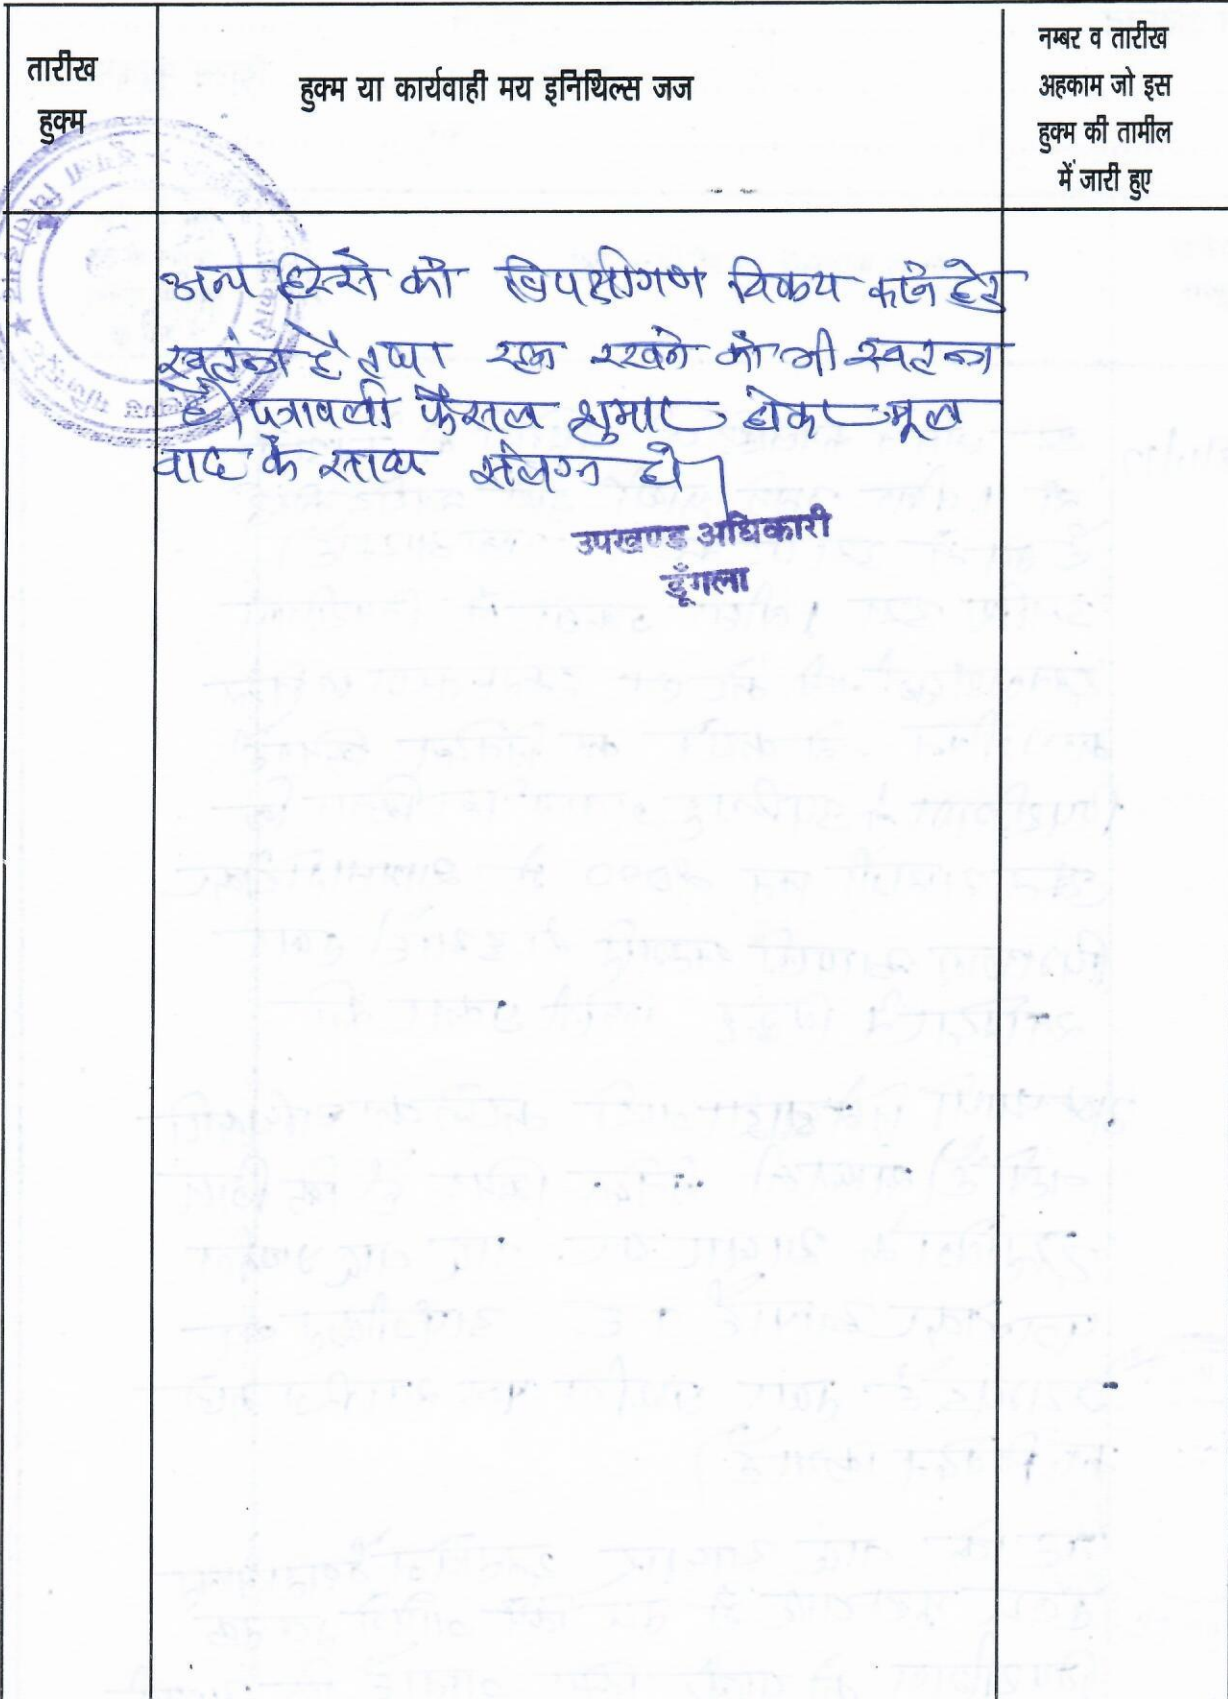 तारीख
हुक्म
हुक्म या कार्यवाही मय इनिथिल्स जज
नम्बर व तारीख
अहकाम जो इस
हुक्म की तामील
में जारी हुए
अन्य हिस्से को विपक्षीगण विक्रय करने हेतु
स्वतंत्र है तथा रहन रखने को भी स्वतन्त्र
है। पत्रावली फैसल शुमार होकर मूल
वाद के साथ संलग्न हो।
उपखण्ड अधिकारी
डूँगला